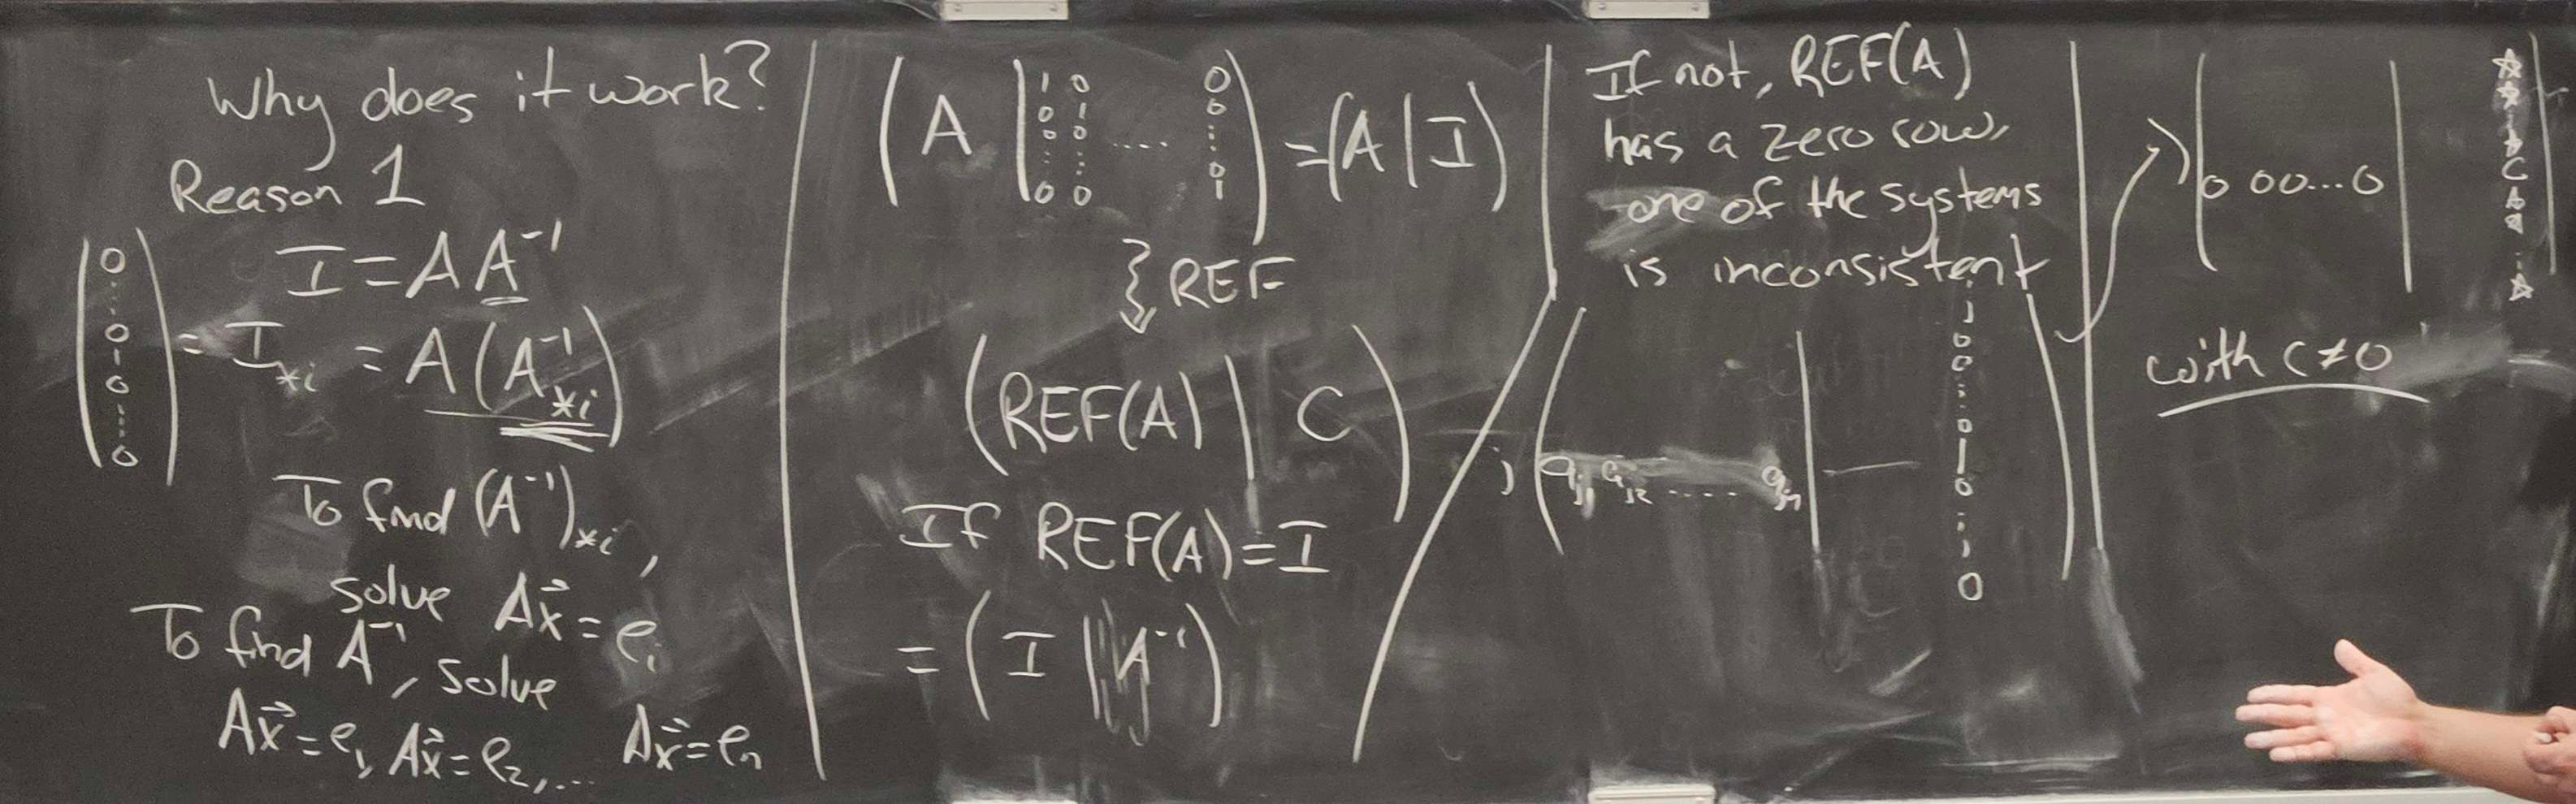 Why does it work?
Reason 1
I = A A⁻¹
(0 ⋮ 0 1 0 ⋮ 0) = I_{*i} = A(A⁻¹_{*i})
To find (A⁻¹)_{*i},
solve Ax⃗ = e_i
To find A⁻¹, solve
Ax⃗ = e₁, Ax⃗ = e₂, ... Ax⃗ = e_n
(A | 1 0 0
0 1 0
0 0 .... ⋮
⋮ ⋮ 0
0 0 1) = (A | I)
REF
(REF(A) | C)
If REF(A) = I
= (I | A⁻¹)
If not, REF(A)
has a zero row,
one of the systems
is inconsistent
j (a_{j1} a_{j2} ..... a_{jn} | — 0 0 ⋮ 0 1 0 ⋮ 0)
0 0 0 ... 0 | C
with C ≠ 0